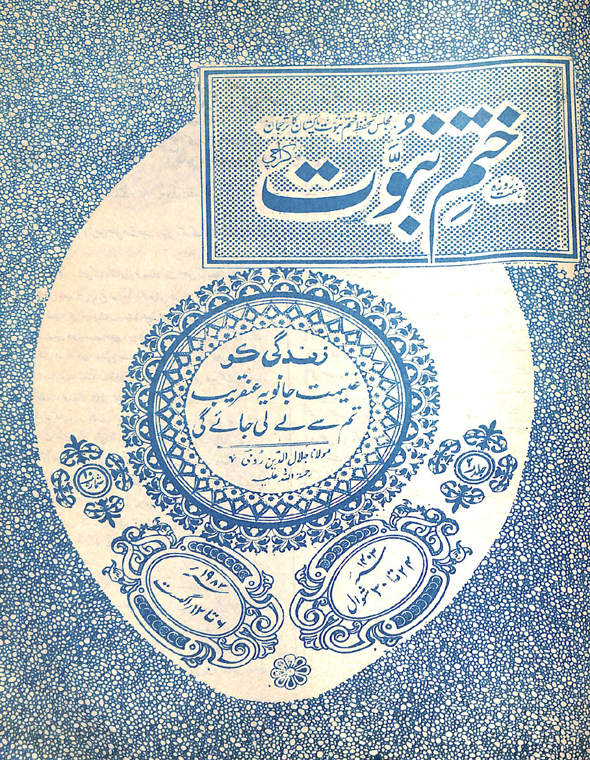 مجلس تحفظ ختم نبوت پاکستان کا ترجمان
ہفت روزہ
ختمِ نبوَّت
کراچی
زندگی کو
غنیمت جانو یہ عنقریب
تم سے لے لی جائے گی
مولانا جلال الدین رومیؒ
رحمۃ اللہ علیہ
جلد
شمارہ
۲۴ تا ۳۰ شوال
۱۴۰۳
۶ تا ۱۲ اگست